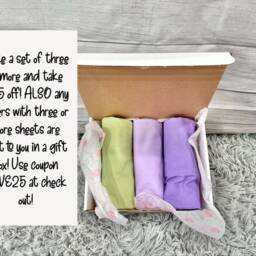 e a set of three
more and take
5 off! ALSO any
ers with three or
ore sheets are
t to you in a gift
ox! Use coupon
VE25 at check
out!